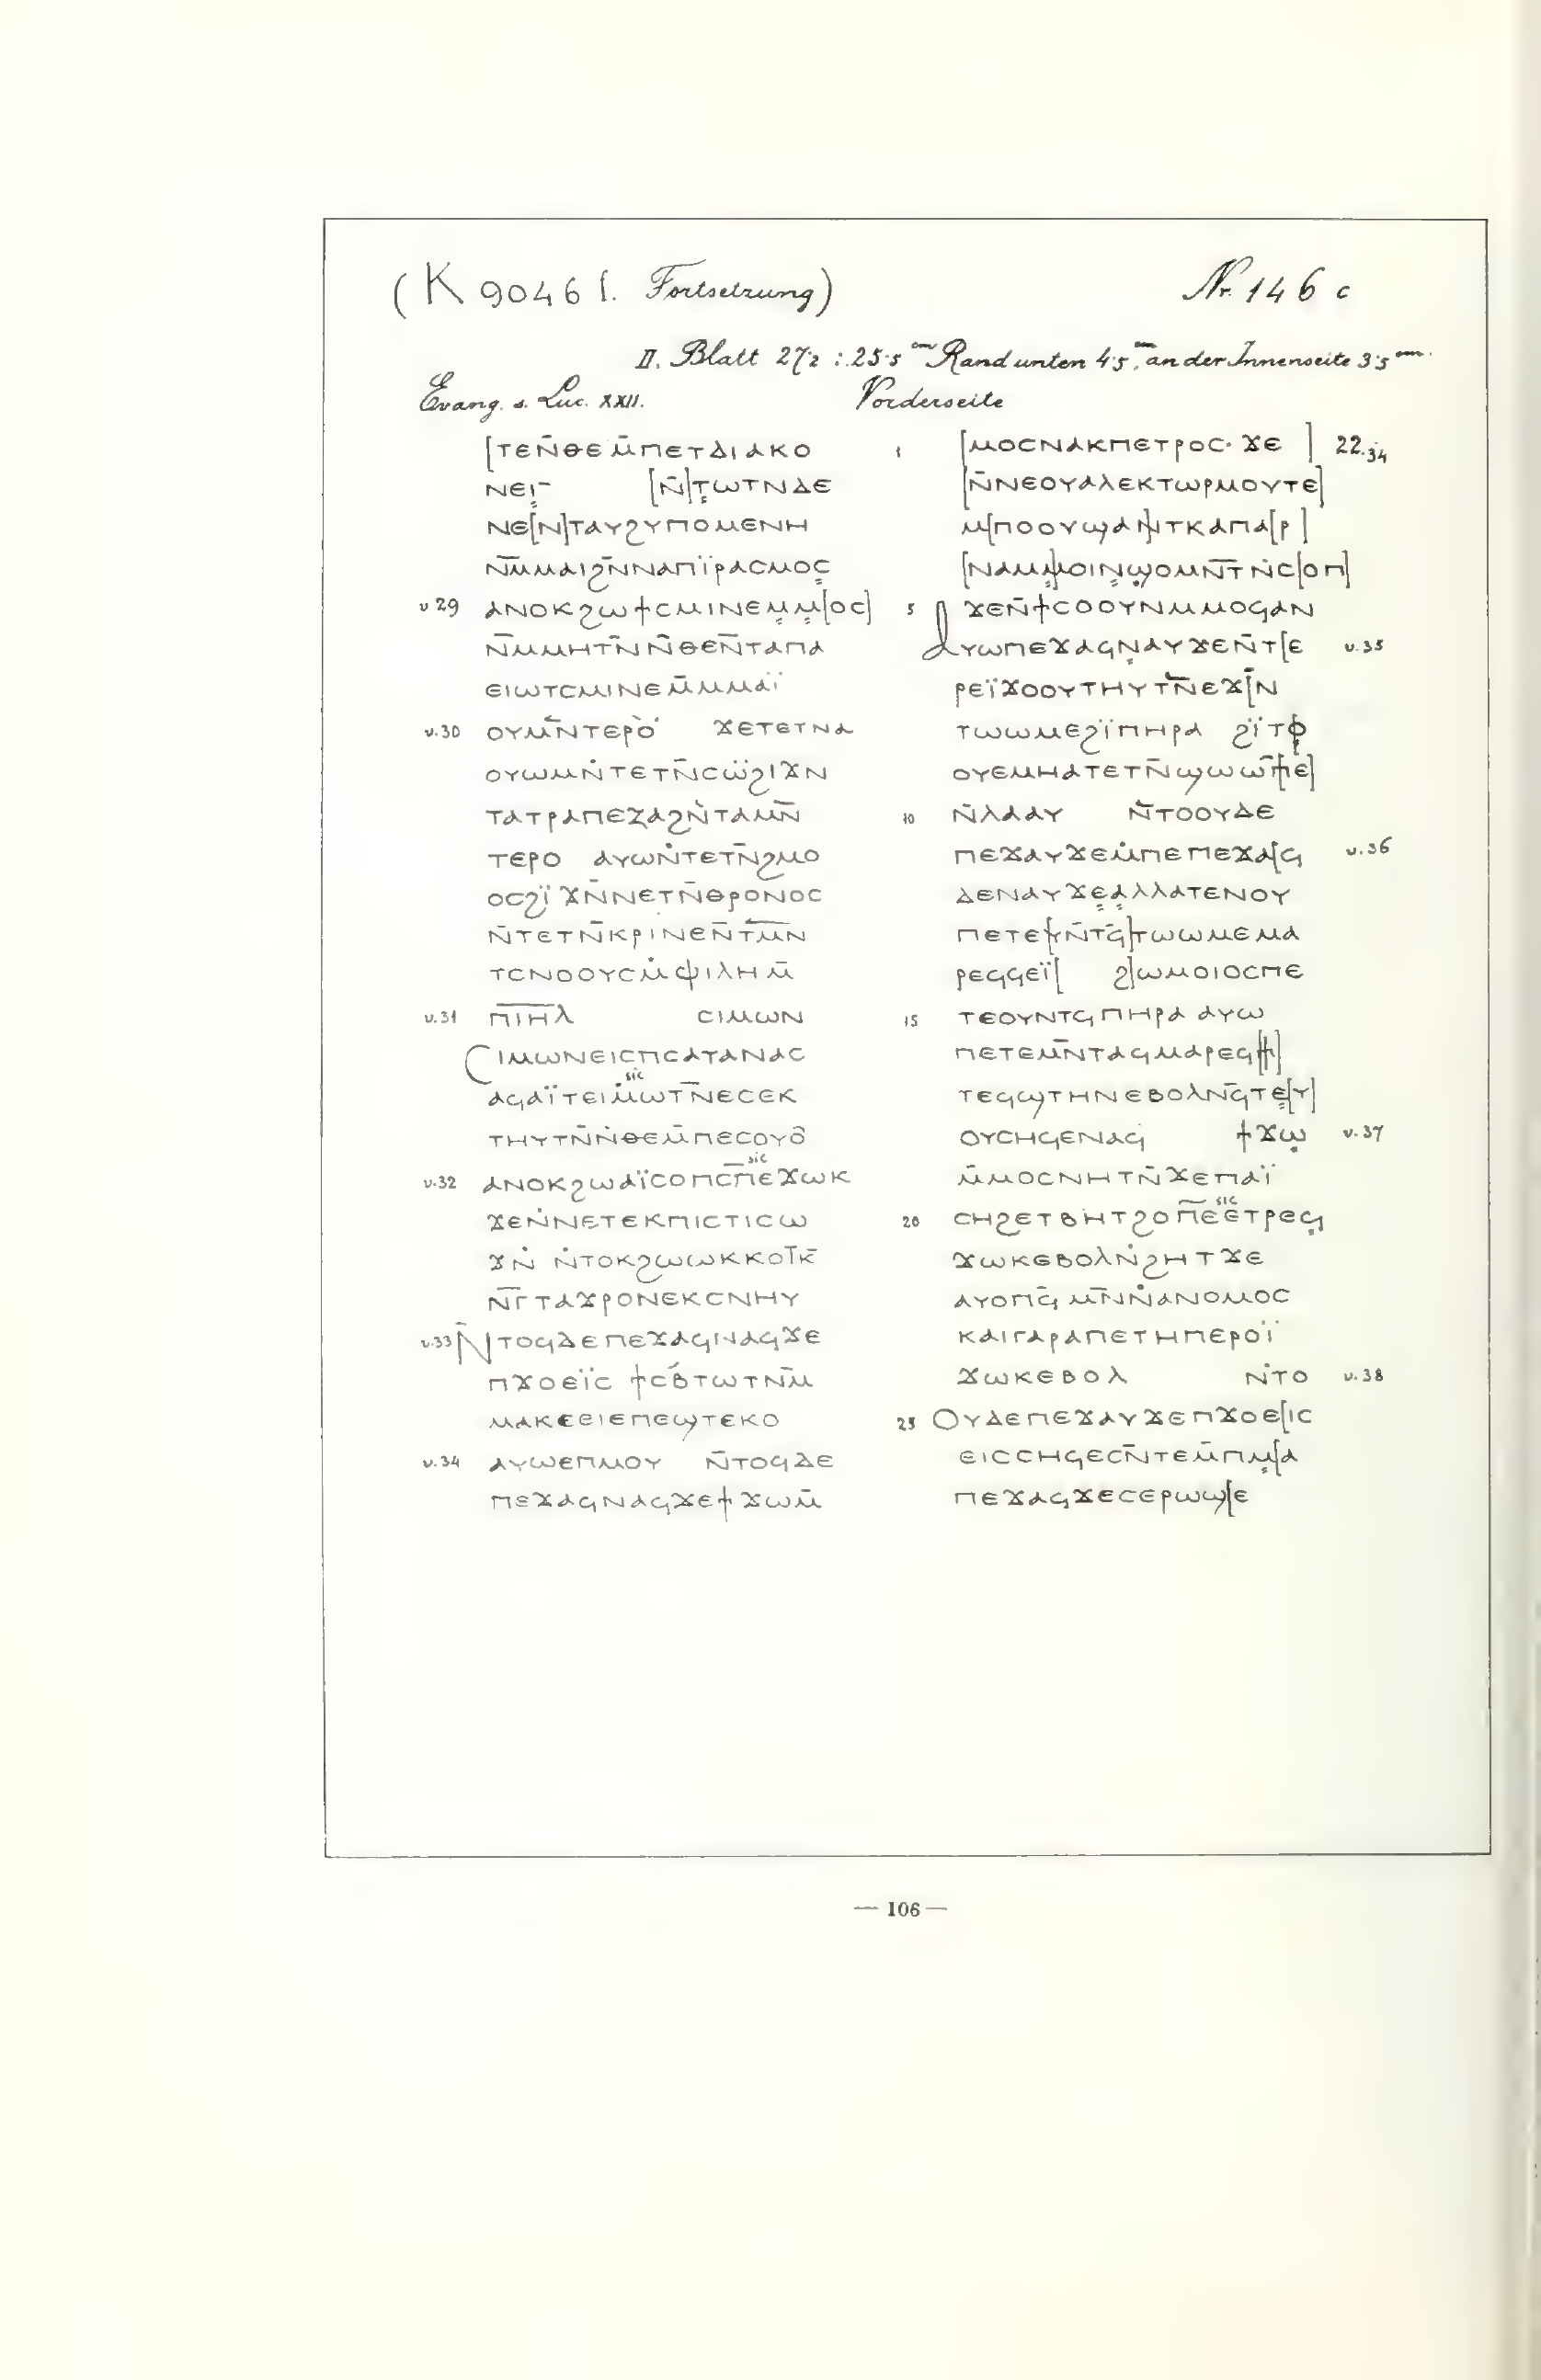 (K 9046 f. Fortsetzung) Nr. 146 c
II. Blatt 27·2 : 25·5 cm Rand unten 4·5, an der Innenseite 3·5 cm.
Evang. s. Luc. XXII. Vorderseite
[ⲧⲉⲛ̄ⲑⲉⲙ̄ⲡⲉⲧⲇⲓⲁⲕⲟ
ⲛⲉⲓ [ⲛ̄]ⲧ̣ⲱⲧⲛⲇⲉ
ⲛⲉ[ⲛ]ⲧⲁⲩϩⲩⲡⲟⲙⲉⲛⲏ
ⲛ̄ⲙⲙⲁⲓϩⲛ̄ⲛⲁⲡⲓ̈ⲣⲁⲥⲙⲟⲥ̣
v 29 ⲁⲛⲟⲕϩⲱϯⲥⲙⲓⲛⲉⲙ̣ⲙ̣[ⲟⲥ]
ⲛ̄ⲙⲙⲏⲧⲛ̄ⲛ̄ⲑⲉⲛ̄ⲧⲁⲡⲁ
ⲉⲓⲱⲧⲥⲙⲓⲛⲉⲙ̄ⲙⲙⲁⲓ̈
v.30 ⲟⲩⲙⲛ̄ⲧⲉⲣⲟ̀ ϫⲉⲧⲉⲧⲛⲁ
ⲟⲩⲱⲙⲛ̇ⲧⲉⲧⲛ̄ⲥⲱ̈ϩⲓϫⲛ
ⲧⲁⲧⲣⲁⲡⲉⲍⲁϩⲛ̇ⲧⲁⲙⲛ̄
ⲧⲉⲣⲟ ⲁⲩⲱⲛ̇ⲧⲉⲧⲛ̄ϩⲙⲟ
ⲟⲥϩⲓ̈ϫⲛ̄ⲛⲉⲧⲛ̄ⲑⲣⲟⲛⲟⲥ
ⲛ̄ⲧⲉⲧⲛ̄ⲕⲣⲓⲛⲉⲛ̄ⲧⲙ̄ⲛ̄
ⲧⲥⲛⲟⲟⲩⲥⲙ̇ⲫⲩⲗⲏⲙ̄
v.31 ⲡⲓ̄ⲏ̄ⲗ ⲥⲓⲙⲱⲛ
Ⲥⲓⲙⲱⲛⲉⲓⲥⲡⲥⲁⲧⲁⲛⲁⲥ
sic
ⲁϥⲁⲓ̈ⲧⲉⲓⲙ̇ⲱⲧⲛ̄ⲉⲥⲉⲕ
ⲧⲏⲩⲧⲛ̄ⲛ̇ⲑⲉⲙ̄ⲡⲉⲥⲟⲩⲟ̂
sic
v.32 ⲁⲛⲟⲕϩⲱⲁⲓ̈ⲥⲟⲡⲥ̄ⲡ̄ⲉϫⲱⲕ
ϫⲉⲛ̇ⲛⲉⲧⲉⲕⲡⲓⲥⲧⲓⲥⲱ
ϫⲛ̇ ⲛ̇ⲧⲟⲕϩⲱⲱⲕⲕⲟⲧ̄ⲕ̄
ⲛ̄ⲅ̄ⲧⲁϫⲣⲟⲛⲉⲕⲥⲛⲏⲩ
v.33 Ⲛ̄ⲧⲟϥⲇⲉⲡⲉϫⲁϥⲛⲁϥϫⲉ
ⲡϫⲟⲉⲓ̈ⲥ ϯⲥⲃ̄ⲧⲱⲧⲛⲙ̄
ⲙⲁⲕⲉⲉⲓⲉⲡⲉϣⲧⲉⲕⲟ
v.34 ⲁⲩⲱⲉⲡⲙⲟⲩ ⲛ̄ⲧⲟϥⲇⲉ
ⲡⲉϫⲁϥⲛⲁϥϫⲉϯϫⲱⲙ̄
1 [ⲙⲟⲥⲛⲁⲕⲡⲉⲧⲣⲟⲥ· ϫⲉ ] 22.34
[ⲛ̄ⲛⲉⲟⲩⲁⲗⲉⲕⲧⲱⲣⲙⲟⲩⲧⲉ]
ⲙ[ⲡⲟⲟⲩϣⲁⲛ]ⲧⲕⲁⲡⲁ[ⲣ ]
[ⲛⲁⲙ]ⲙⲟⲓⲛ̣ϣ̣ⲟⲙⲛ̄ⲧ̄ⲛ̇ⲥ[ⲟⲡ]
5 ϫⲉⲛ̄ϯⲥⲟⲟⲩⲛⲙⲙⲟϥⲁⲛ
ⲁⲩⲱⲡⲉϫⲁϥⲛ̣ⲁⲩϫⲉⲛ̄ⲧ[ⲉ v.35
ⲣⲉⲓ̈ϫⲟⲟⲩⲧⲏⲩⲧⲛ̄ⲉϫ[ⲛ̄
ⲧⲱⲱⲙⲉϩⲓ̈ⲡⲏⲣⲁ ϩⲓ̈ⲧⲟ̣
ⲟⲩⲉⲙⲏⲁⲧⲉⲧⲛ̄ϣⲱⲱ̄[ⲧⲉ]
10 ⲛ̄ⲗⲁⲁⲩ ⲛ̄ⲧⲟⲟⲩⲇⲉ
ⲡⲉϫⲁⲩϫⲉⲙ̇ⲡⲉⲡⲉϫⲁ[ϥ v.36
ⲇⲉⲛⲁⲩϫⲉ̣ⲁ̣ⲗⲗⲁⲧⲉⲛⲟⲩ
ⲡⲉⲧⲉⲩ[ⲛ̄ⲧϥ̄]ⲧⲱⲱⲙⲉⲙⲁ
ⲣⲉϥϥⲉⲓ̈[ ϩ]ⲱⲙⲟⲓⲟⲥⲡⲉ
15 ⲧⲉⲟⲩⲛⲧϥⲡⲏⲣⲁ ⲁⲩⲱ
ⲡⲉⲧⲉⲙⲛ̄ⲧⲁϥⲙⲁⲣⲉϥ[ϯ]
ⲧⲉϥϣⲧⲏⲛⲉⲃⲟⲗⲛϥ̄ⲧⲉ̣[ⲩ]
ⲟⲩⲥⲏϥⲉⲛⲁϥ ϯϫⲱ̣ v.37
ⲙ̄ⲙⲟⲥⲛⲏⲧⲛ̄ϫⲉⲡⲁⲓ̈
sic
20 ⲥⲏϩⲉⲧⲃⲏⲧϩⲟⲡ̄ⲉ̄ⲉⲧⲣⲉϥ
ϫⲱⲕⲉⲃⲟⲗⲛ̇ϩⲏⲧϫⲉ
ⲁⲩⲟⲡϥ̄ ⲙⲛ̄ⲛ̇ⲁⲛⲟⲙⲟⲥ
ⲕⲁⲓⲅⲁⲣⲁⲡⲉⲧⲏⲡⲉⲣⲟⲓ̈
ϫⲱⲕⲉⲃⲟⲗ ⲛ̇ⲧⲟ v.38
25 Ⲟⲩⲇⲉⲡⲉϫⲁⲩϫⲉⲡϫⲟⲉ[ⲓⲥ
ⲉⲓⲥⲥⲏϥⲉⲥⲛ̄ⲧⲉⲙ̄ⲡⲙ̣[ⲁ
ⲡⲉϫⲁϥϫⲉⲥⲉⲣⲱϣ[ⲉ
— 106 —